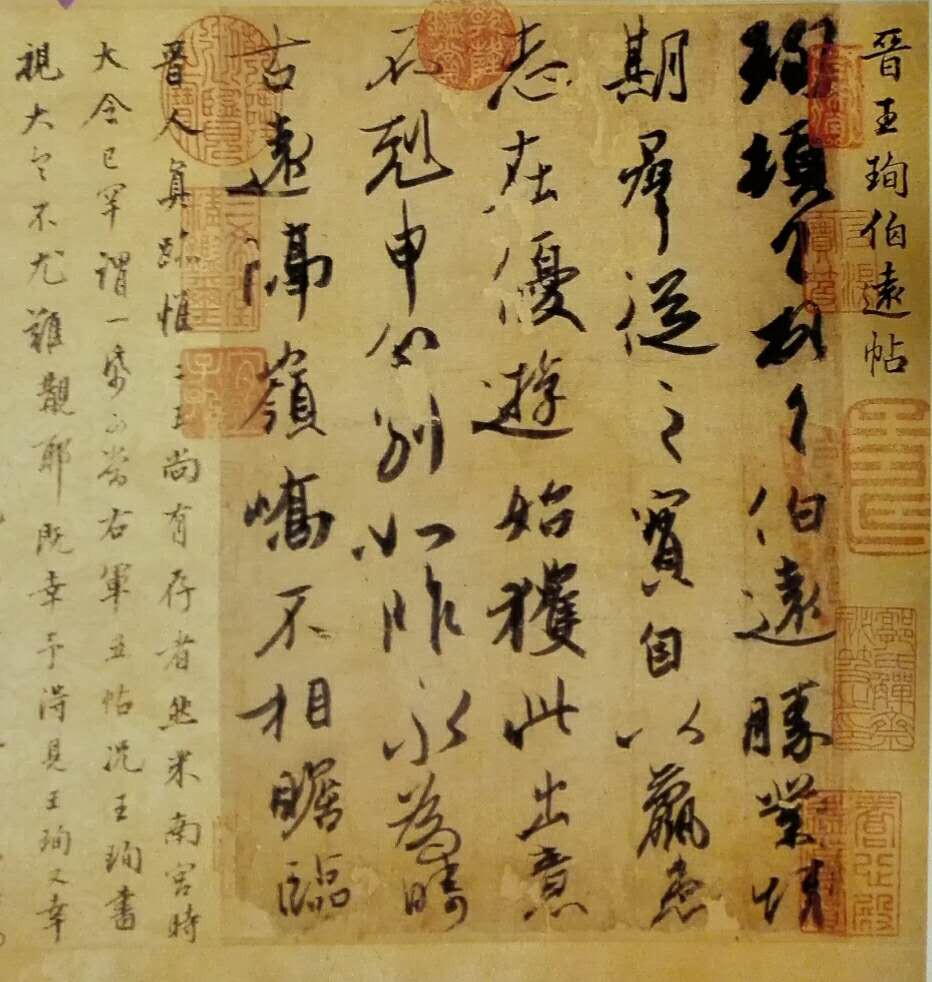 晉王珣伯遠帖
珣頓首頓首伯遠勝業情
期羣從之寶自以羸患
志在優遊始獲此出意
不剋申分別如昨永為疇
古遠隔嶺嶠不相瞻臨
晉人真跡惟二王尚有存者然米南宮時
大令已罕謂一紙可當右軍五帖況王珣書
視大令不尤難覯耶既幸予得見王珣又幸